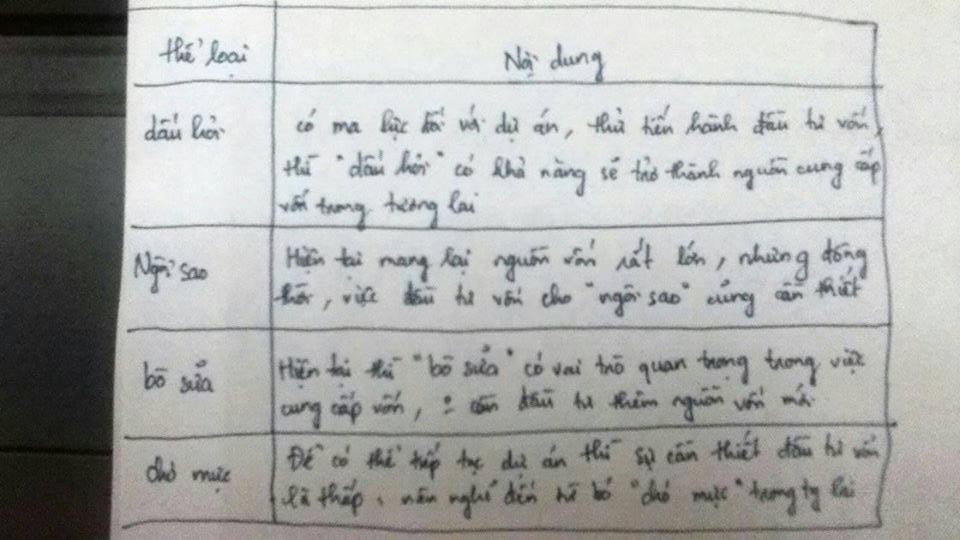 thể loại
Nội dung
dấu hỏi
có ma lực đối với dự án, thử tiến hành đầu tư vốn,
thì "dấu hỏi" có khả năng sẽ trở thành nguồn cung cấp
vốn trong tương lai
Ngôi sao
Hiện tại mang lại nguồn vốn rất lớn, nhưng đồng
thời, việc đầu tư vốn cho "ngôi sao" cũng cần thiết
bò sữa
Hiện tại thì "bò sữa" có vai trò quan trọng trong việc
cung cấp vốn, cần đầu tư thêm nguồn vốn mới
chó mực
Để có thể tiếp tục dự án thì sự cần thiết đầu tư vốn
là thấp, nên nghĩ đến từ bỏ "chó mực" trong tg lai